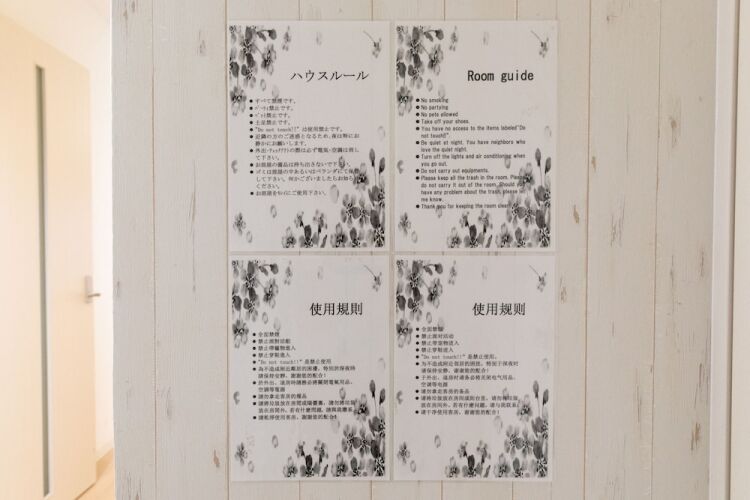 ハウスルール
● すべて禁煙です。
● ﾊﾟｰﾃｨ禁止です。
● ﾍﾟｯﾄ禁止です。
● 土足禁止です。
● "Do not touch!!" は使用禁止です。
● 近隣の方のご迷惑となるため、夜は特にお
静かにお願いします。
● 外出・ﾁｪｯｸｱｳﾄの際は必ず電気・空調は消し
て下さい。
● お部屋の備品は持ち出さないで下さい。
● ゴミは部屋の中あるいはベランダにて保管
して下さい。何かございましたらお知らせ
ください。
● お部屋をｷﾚｲにご使用下さい。
Room guide
● No smoking
● No partying
● No pets allowed
● Take off your shoes.
● You have no access to the items labeled"Do
not touch!!"
● Be quiet at night. You have neighbors who
love the quiet night.
● Turn off the lights and air conditioning when
you go out.
● Do not carry out equipments.
● Please keep all the trash in the room. Please
do not carry it out of the room. Should you
have any problem about the trash, please let
me know.
● Thank you for keeping the room clean!
使用規則
● 全面禁煙
● 禁止派對活動
● 禁止帶寵物進入
● 禁止穿鞋進入
● "Do not touch!!" 是禁止使用
● 為不造成附近鄰居的困擾，特別於深夜時
請保持安靜，謝謝您的配合！
● 於外出、退房時請務必將關閉電氣用品、
空調等電源
● 請勿拿走客房的備品
● 請將垃圾放在房間或陽臺裏，請勿將垃圾
放在房間外，若有什麼問題，請與我聯系
● 請乾淨使用客房，謝謝您的配合！
使用规则
● 全面禁烟
● 禁止派对活动
● 禁止带宠物进入
● 禁止穿鞋进入
● "Do not touch!!" 是禁止使用。
● 为不造成附近邻居的困扰，特别于深夜时
请保持安静，谢谢您的配合！
● 于外出、退房时请务必将关闭电气用品、
空调等电源
● 请勿拿走客房的备品
● 请将垃圾放在房间或阳台里，请勿将垃圾
放在房间外，若有什麽问题，请与我联系
● 请干净使用客房，谢谢您的配合！